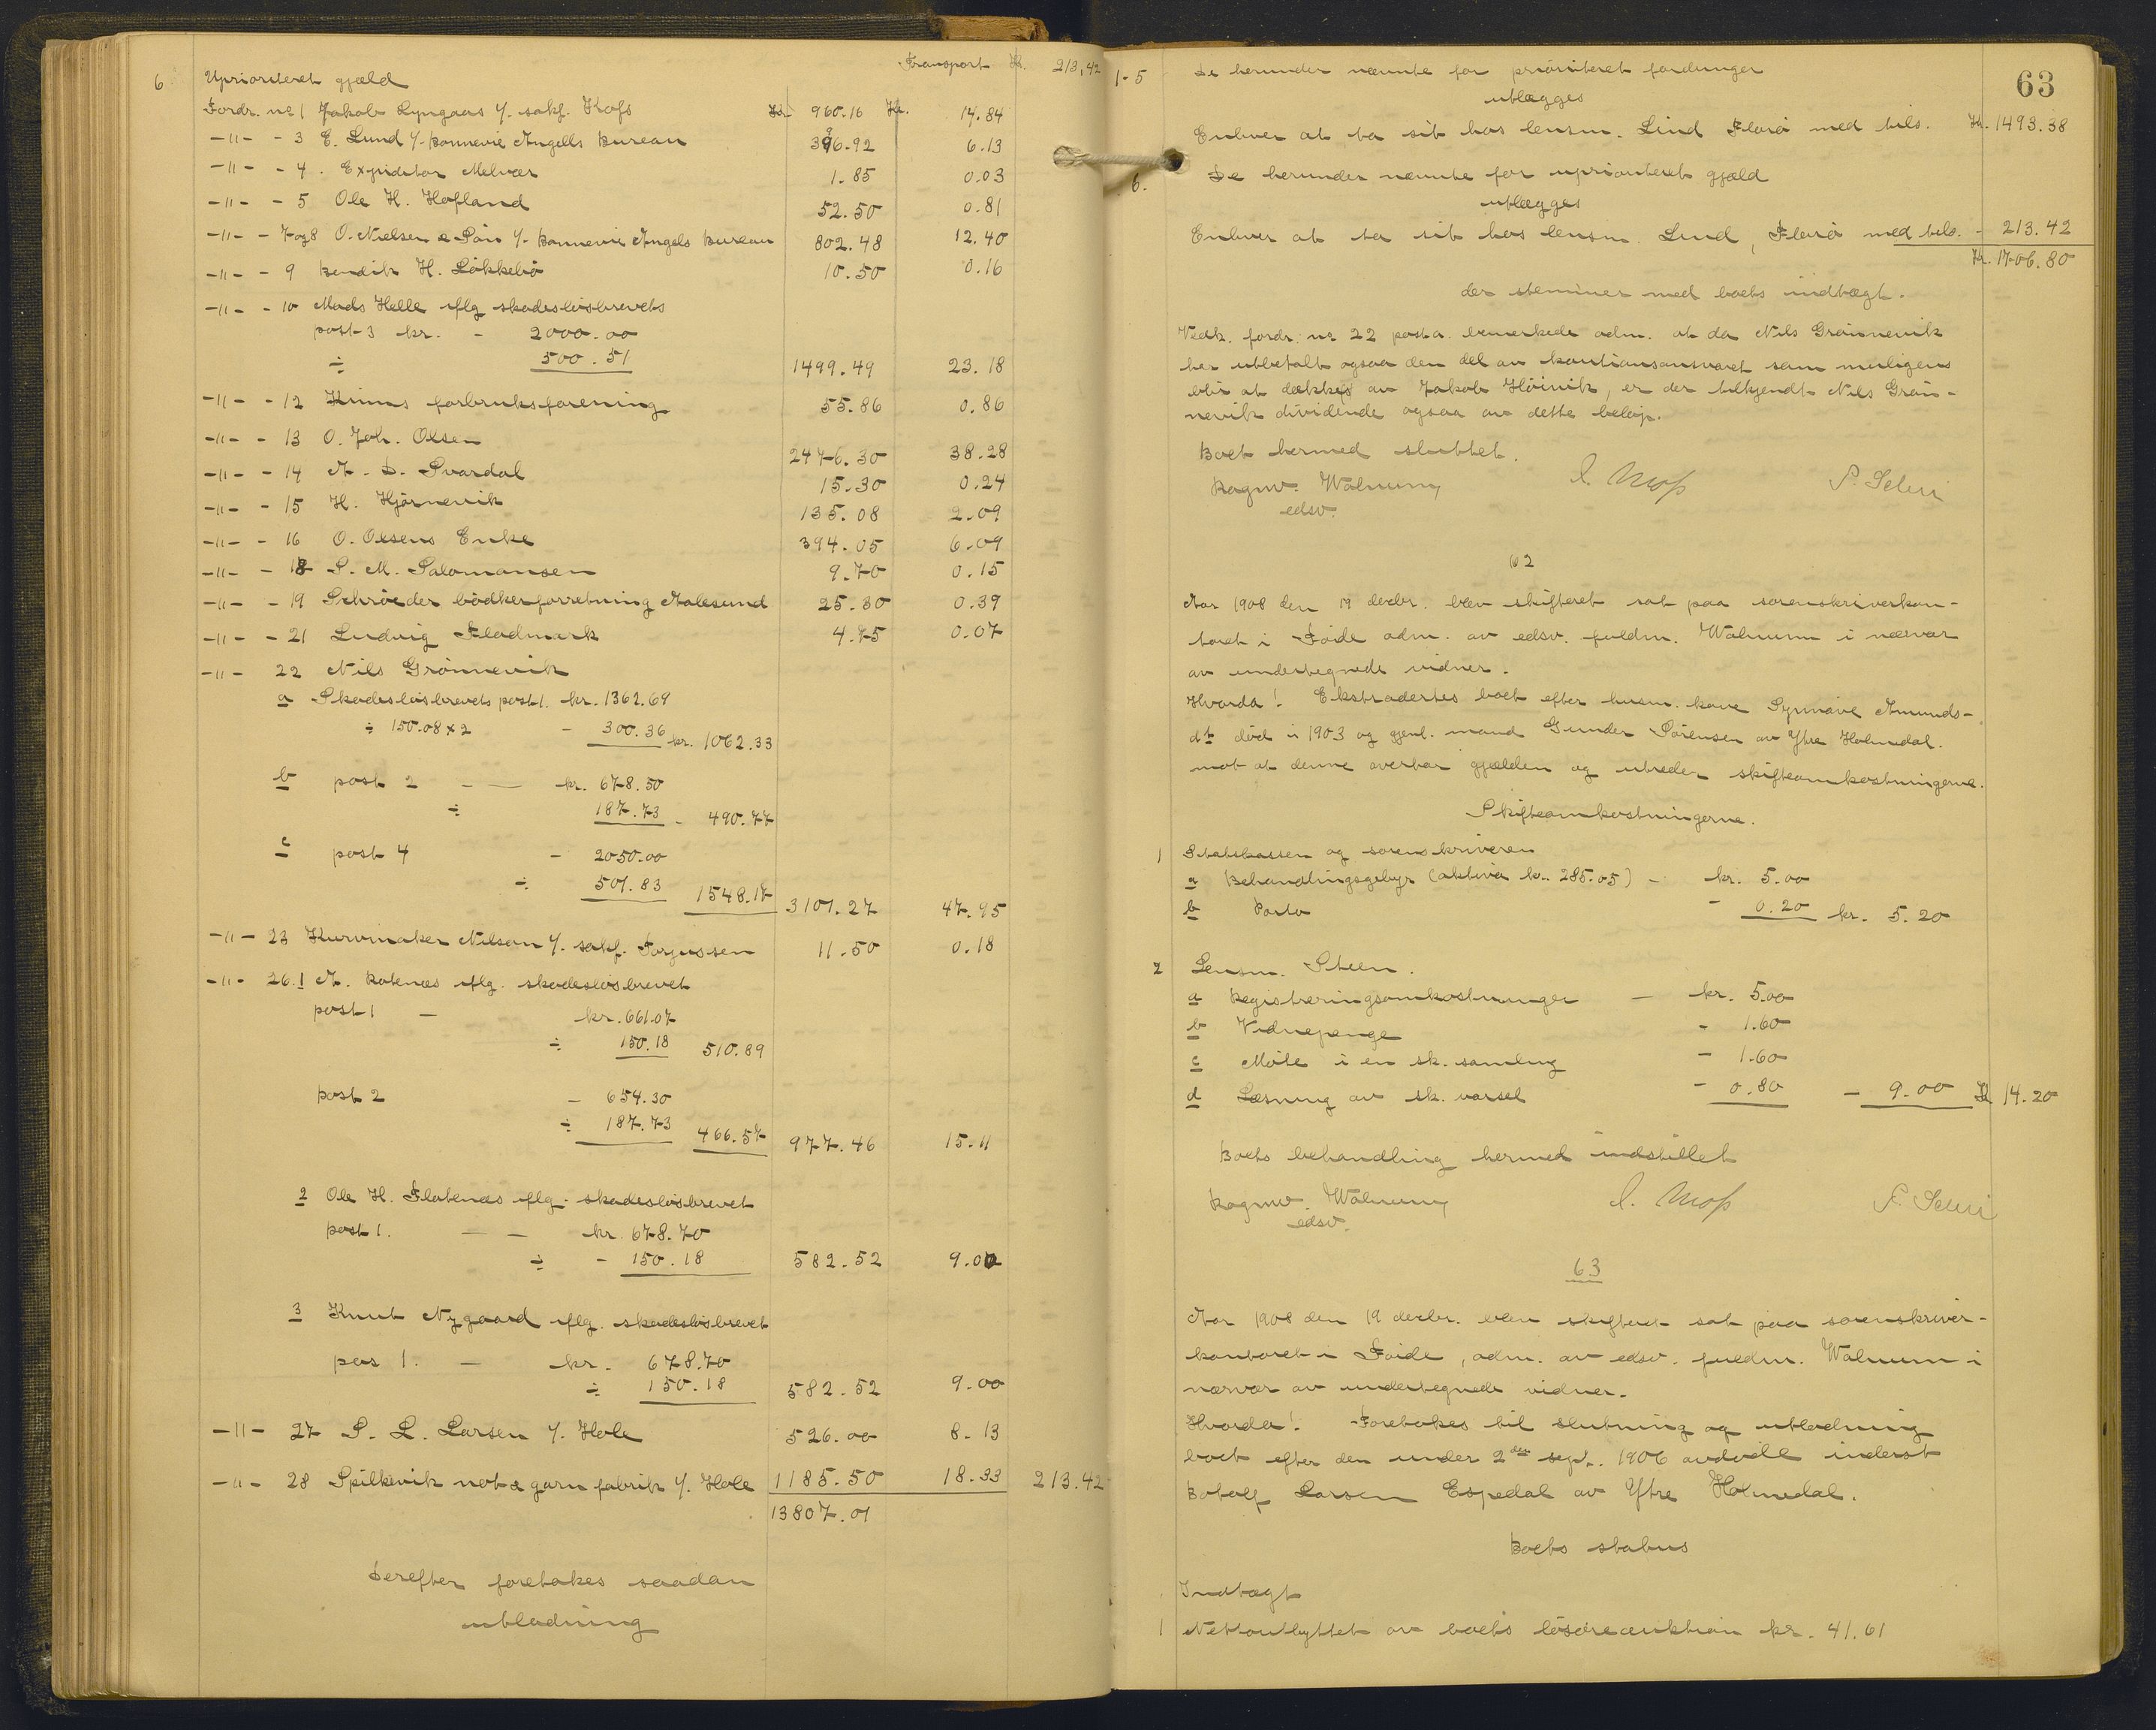 Transport Kr. 213,42
6 Uprioriteret gjæld
Fordr. no 1 Jakob Lyngaas v. sakf. Kofs Kr. 960.16 Kr. 14.84
-"- - 3 E. Lund v. Bonnevie Angells Bureau 396.92 6.13
-"- - 4. Expeditør Melvær 1.85 0.03
-"- - 5 Ole H. Hofland 52.50 0.81
-"- - 7 og 8 O. Nielsen & Søn v. Bonnevie Angels Bureau 802.48 12.40
-"- - 9 Bendik H. Løkkebø 10.50 0.16
-"- - 10 Mads Helle iflg skadesløsbrevets
post 3 kr. - 2000.00
÷ 500.51 1499.49 23.18
-"- - 12 Kinns forbruksforening 55.86 0.86
-"- - 13 O. Joh. Olsen 2476.30 38.28
-"- - 14 A. D. Svardal 15.30 0.24
-"- - 15 H. Hjørnevik 135.08 2.09
-"- - 16 O. Olsens Enke 394.05 6.09
-"- - 18 S. M. Salomonsen 9.70 0.15
-"- - 19 Schrøeder bødkerforretning Aalesund 25.30 0.39
-"- - 21 Ludvig Flodmark 4.75 0.07
-"- 22 Nils Grønnevik
a Skadesløsbrevets post 1. kr. 1362.69
÷ 150.08 x 2 - 300.36 kr. 1062.33
b post 2 - — kr. 678.50
÷ 187.73 - 490.77
c post 4 - 2050.00
÷ 501.83 1548.17 3101.27 47.95
-"- 23 Kurvmaker Nilsen v. sakf. Torjussen 11.50 0.18
-"- 26.1 A. Botnæs iflg. skadesløsbrevet
post 1 - kr. 661.07
÷ 150.18 510.89
post 2 - 654.30
÷ 187.73 466.57 977.46 15.11
2 Ole H. Flatenæs iflg. skadesløsbrevet
post 1. — — kr. 678.70
÷ - 150.18 582.52 9.00
3 Knut Nygaard iflg. skadesløsbrevet
pos 1. — kr. 678.70
÷ 150.18 582.52 9.00
-"- 27 S. L. Larsen v. Hole 526.00 8.13
-"- 28 Spilkevik not & garn fabrik v. Hole 1185.50 18.33 213.42
13807.01
Derefter foretakes saadan
utlodning
63
1-5 De herunder nævnte for prioriteret fordringer
utlægges
Enhver at ta sit hos lensm. Lind Florø med tils. Kr. 1493.38
6. De herunder nævnte for uprioriteret gjæld
utlægges
Enhver at ta sit hos lensm. Lind, Florø med tils. - 213.42
Kr. 1706.80
der stemmer med boets indtægt.
Vedk. fordr. nr 22 post a. bemerkede adm. at da Nils Grønnevik
har utbetalt ogsaa den del av kautionsansvaret som muligens
blir at dækkes av Jakob Høivik, er der tilkjendt Nils Grøn-
nevik dividende ogsaa av dette beløp.
Boet hermed sluttet.
Ragnv. Walnum I. Moss P. Selvi
edsv.
62
Aar 1908 den 19 decbr. blev skifteret sat paa sorenskriverkon-
toret i Førde adm. av edsv. fuldm. Walnum i nærvær
av undertegnede vidner.
Hvorda! Ekstradertes boet efter husm. kone Synnøve Amunds-
dt død i 1903 og gjenl. mand Gunder Sørensen av Ytre Holmedal.
mot at denne overtar gjælden og utreder skifteomkostningerne.
Skifteomkostningerne.
1 Statskassen og sorenskriveren
a Behandlingsgebyr (aktiva kr. 285.05) - kr. 5.00
b Porto - 0.20 kr. 5.20
2 Lensm. Steen.
a Registreringsomkostninger — kr. 5.00
b Vidnepenge - 1.60
c Møte i en sk. samling - 1.60
d Læsning av sk. varsel - 0.80 - 9.00 Kr 14.20
Boets behandling hermed indstillet
Ragnv. Walnum I. Moss P. Selvi
edsv.
63
Aar 1908 den 19 decbr. blev skifteret sat paa sorenskriver-
kontoret i Førde, adm. av edsv. fuldm. Walnum i
nærvær av undertegnede vidner.
Hvorda! Foretokes til slutning og utlodning
boet efter den under 2den sept. 1906 avdøde inderst
Botolf Larsen Espedal av Ytre Holmedal.
Boets status
Indtægt
1 Nettoutbyttet av boets løsøreauktion kr. 41.61